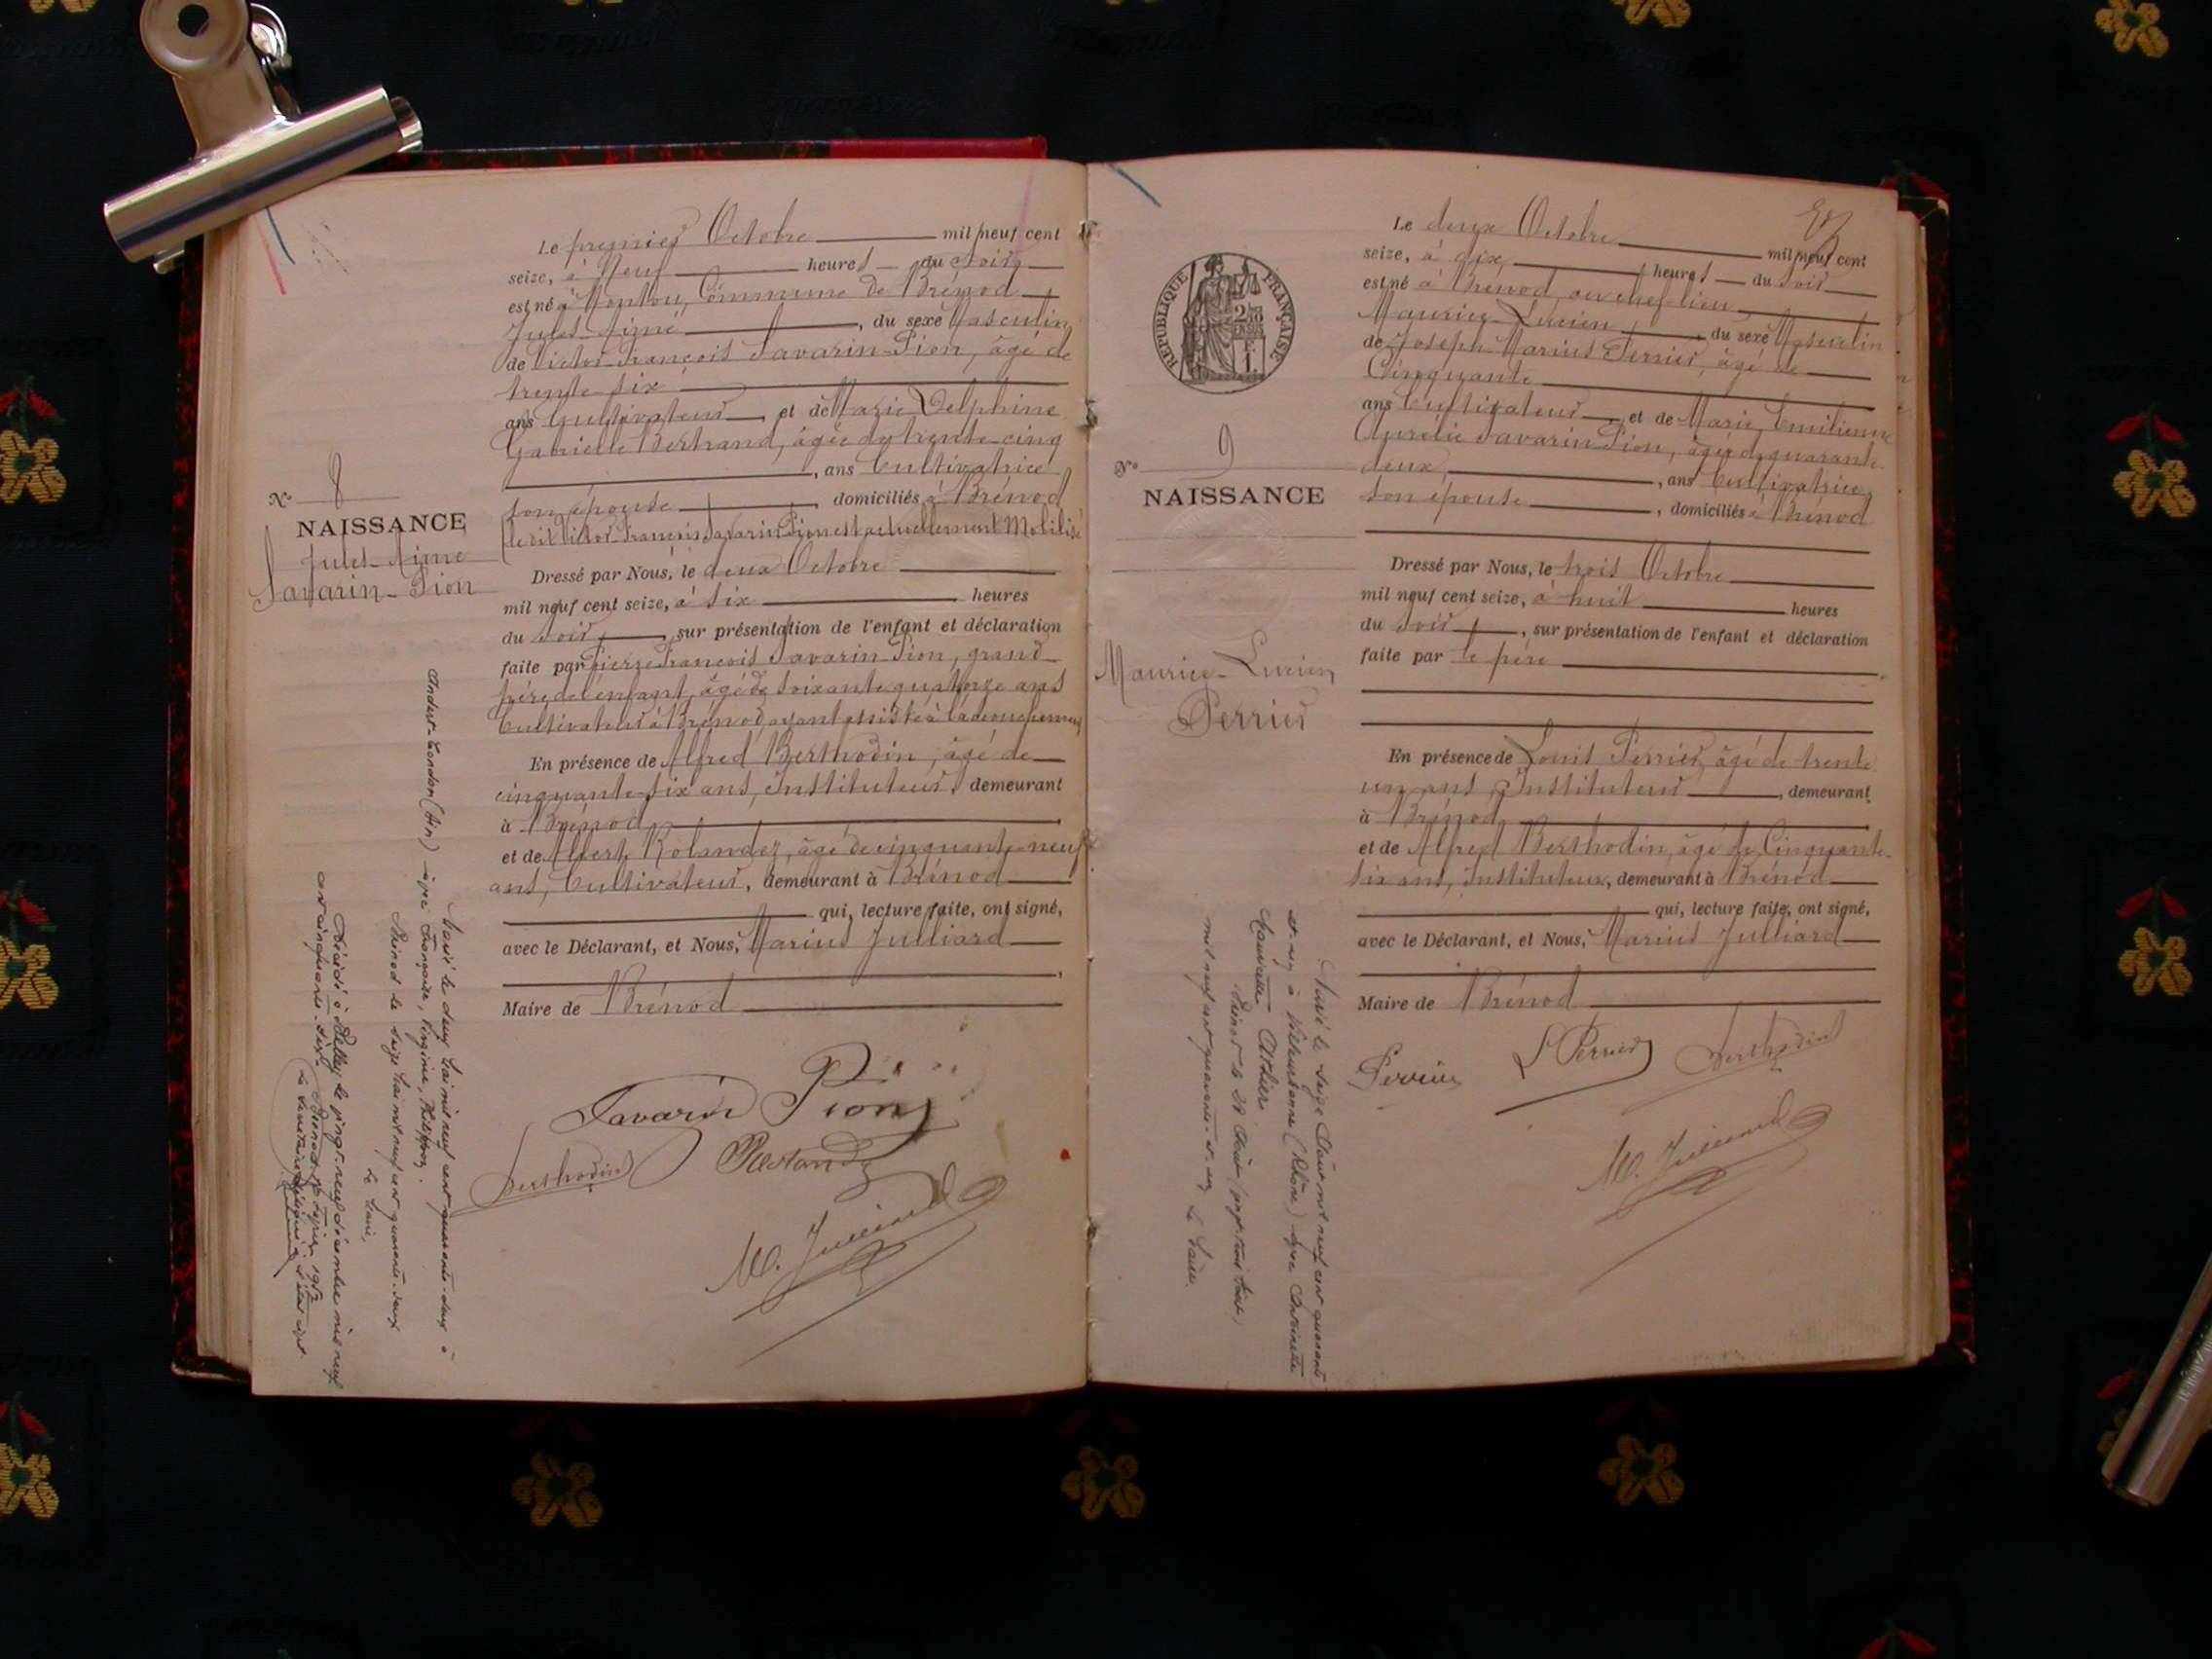 Le premier Octobre mil neuf cent
seize, à Neuf heures du soir
est né à Montou, Commune de Brénod
Jules-Aimé, du sexe Masculin
de Victor François Savarin-Pion, âgé de
trente-six
ans Cultivateur et de Marie Delphine
Gabrielle Bertrand, âgée de trente-cinq
, ans Cultivatrice
son épouse, domiciliés à Brénod
le dit Victor François Savarin Pion est actuellement Mobilisé
N° 8
NAISSANCE
Jules-Aimé
Savarin-Pion
Dressé par Nous, le deux Octobre
mil neuf cent seize, à six heures
du soir, sur présentation de l'enfant et déclaration
faite par Pierre François Savarin-Pion, grand-
père de l'enfant, âgé de soixante quatorze ans
Cultivateur à Brénod, ayant assisté à l'accouchement
En présence de Alfred Berthodin, âgé de
cinquante-six ans, Instituteur, demeurant
à Brénod
et de Albert Rolandez, âgé de cinquante-neuf
ans, Cultivateur, demeurant à Brénod
qui, lecture faite, ont signé,
avec le Déclarant, et Nous, Marius Julliard
Maire de Brénod
Savarin Pion
Berthodin
Rolandez
M. Julliard
Marié le deux Mai mil neuf cent quarante-deux à
Andert-Condon (Ain) avec Françoise, Virginie, Philippon.
Brénod le seize Mai mil neuf cent quarante-deux
Le Maire,
Décédé à Belley le vingt-neuf décembre mil neuf
cent cinquante-six.
RÉPUBLIQUE FRANÇAISE
Le deux Octobre mil neuf cent
seize, à dix heures du soir
est né à Brénod, au chef-lieu
Maurice-Lucien du sexe Masculin
de Joseph Marius Perrier, âgé de
Cinquante
ans Cultivateur et de Marie Emilienne
Aurélie Savarin Pion, âgée de quarante-
deux, ans Cultivatrice,
son épouse, domiciliés à Brénod
N° 9
NAISSANCE
Maurice-Lucien
Perrier
Dressé par Nous, le trois Octobre
mil neuf cent seize, à huit heures
du soir, sur présentation de l'enfant et déclaration
faite par le père
En présence de Louis Perrier, âgé de trente
un ans, Instituteur, demeurant
à Brénod
et de Alfred Berthodin, âgé de Cinquante-
six ans, Instituteur, demeurant à Brénod
qui, lecture faite, ont signé,
avec le Déclarant, et Nous, Marius Julliard
Maire de Brénod
Perrier
L. Perrier
Berthodin
M. Julliard
Marié le seize Août mil neuf cent quarante
et un à Villeurbanne (Rhône) avec Antoinette
mil neuf cent quarante-et-un Le Maire.